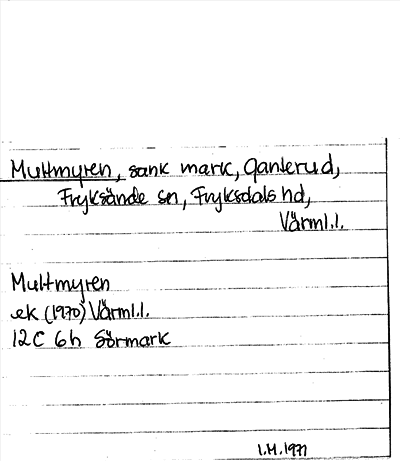 Multmyren, sank mark, Qanterud,
Fryksände sn, Fryksdals hd,
Värml.l.
Multmyren
ek (1970) Värml.l.
12C 6h Sörmark
I.H. 1971